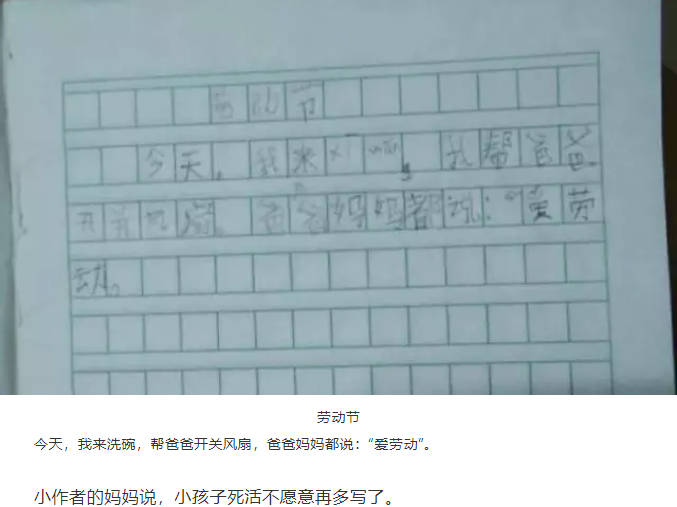 劳动节
今天，我来洗碗，我帮爸爸
开关风扇。爸爸妈妈都说：“爱劳
动。
劳动节
今天，我来洗碗，帮爸爸开关风扇，爸爸妈妈都说：“爱劳动”。
小作者的妈妈说，小孩子死活不愿意再多写了。